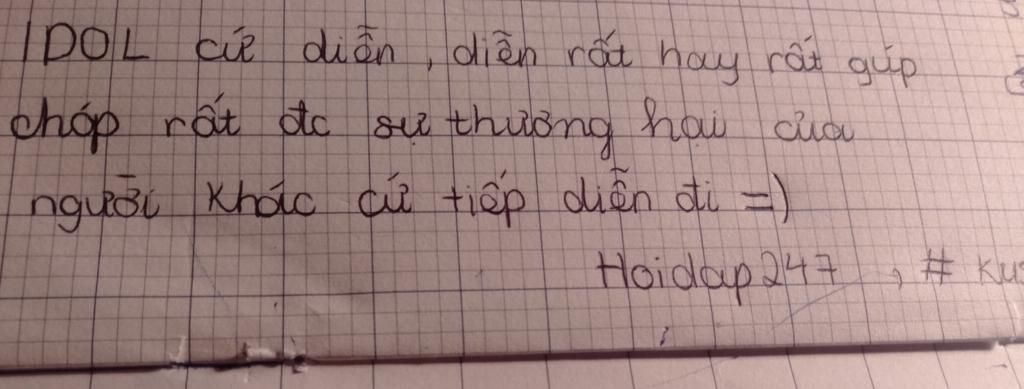 IDOL cứ diễn, diễn rất hay rất gúp
chóp rất đc sự thương hại của
người khác cứ tiếp diễn đi =)
Hoidap247, #